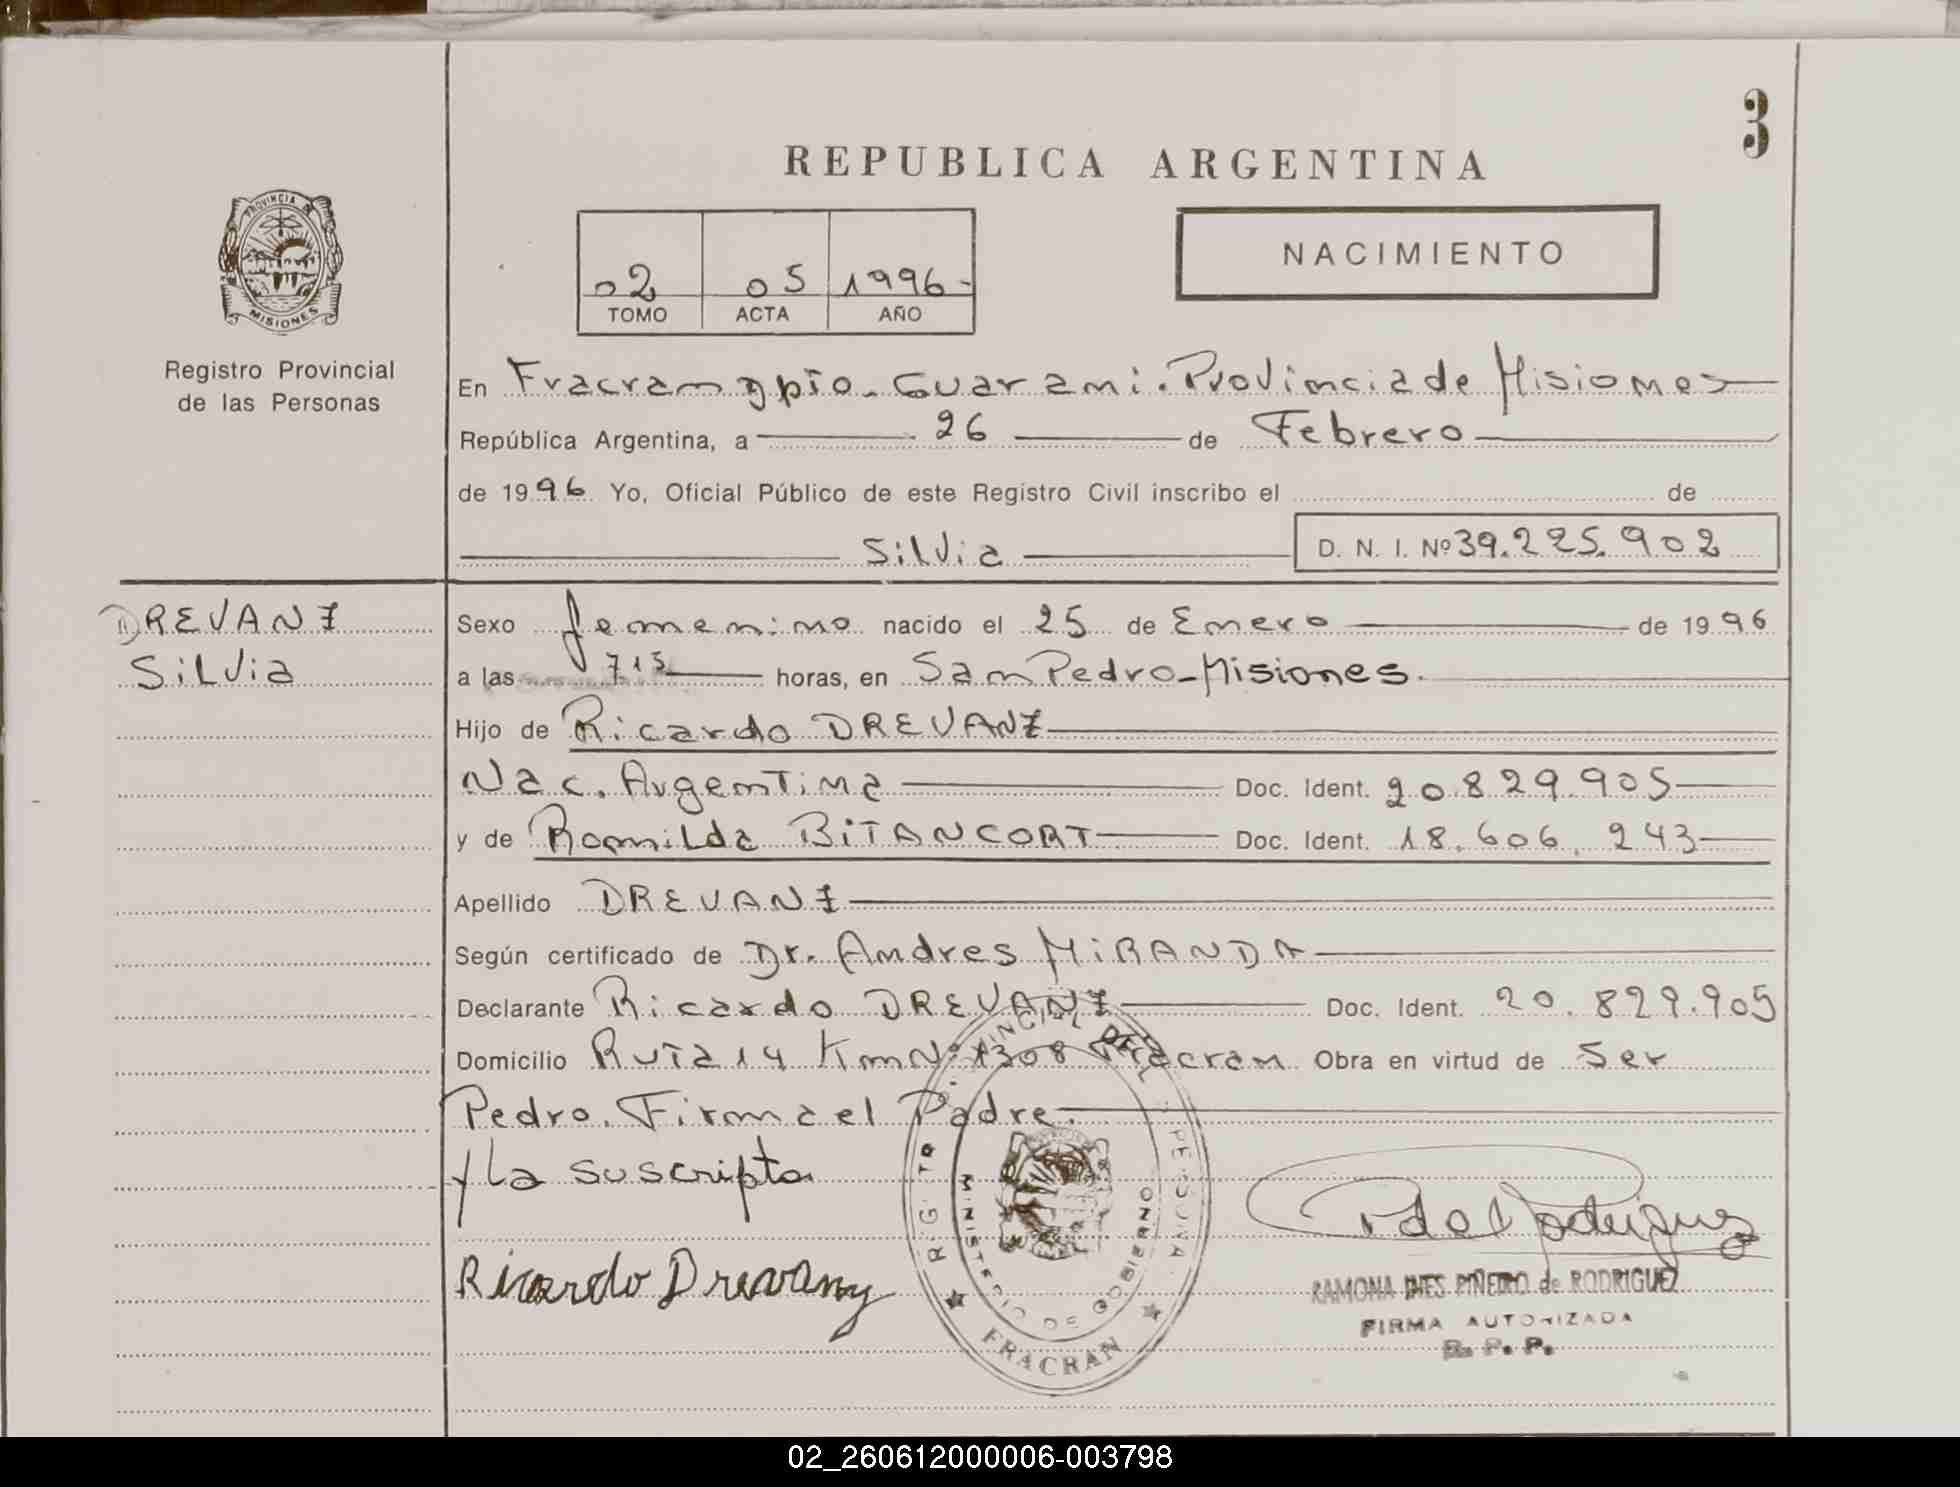 3
REPUBLICA ARGENTINA
PROVINCIA DE
MISIONES
Registro Provincial
de las Personas
02 05 1996-
TOMO ACTA AÑO
NACIMIENTO
En Fracran Dpto. Guarani. Provincia de Misiones
República Argentina, a 26 de Febrero
de 1996 Yo, Oficial Público de este Registro Civil inscribo el de
Silvia
D. N. I. Nº 39.225.902
DREVANZ
Silvia
Sexo femenino nacido el 25 de Enero de 1996
a las 715 horas, en San Pedro-Misiones.
Hijo de Ricardo DREVANZ
Nac. Argentina Doc. Ident. 20.829.905
y de Romilda BITANCORT Doc. Ident. 18.606.243
Apellido DREVANZ
Según certificado de Dr. Andres MIRANDA
Declarante Ricardo DREVANZ Doc. Ident. 20.829.905
Domicilio Ruta 14 Km Nº 1308 Fracran Obra en virtud de Ser
Pedro. Firma el Padre.
y La suscripta
Ricardo Drevanz
MINISTERIO DE GOBIERNO
FRACRAN
P de Rodriguez
RAMONA INES PIÑEIRO de RODRIGUEZ
FIRMA AUTORIZADA
R. P. P.
02_260612000006-003798